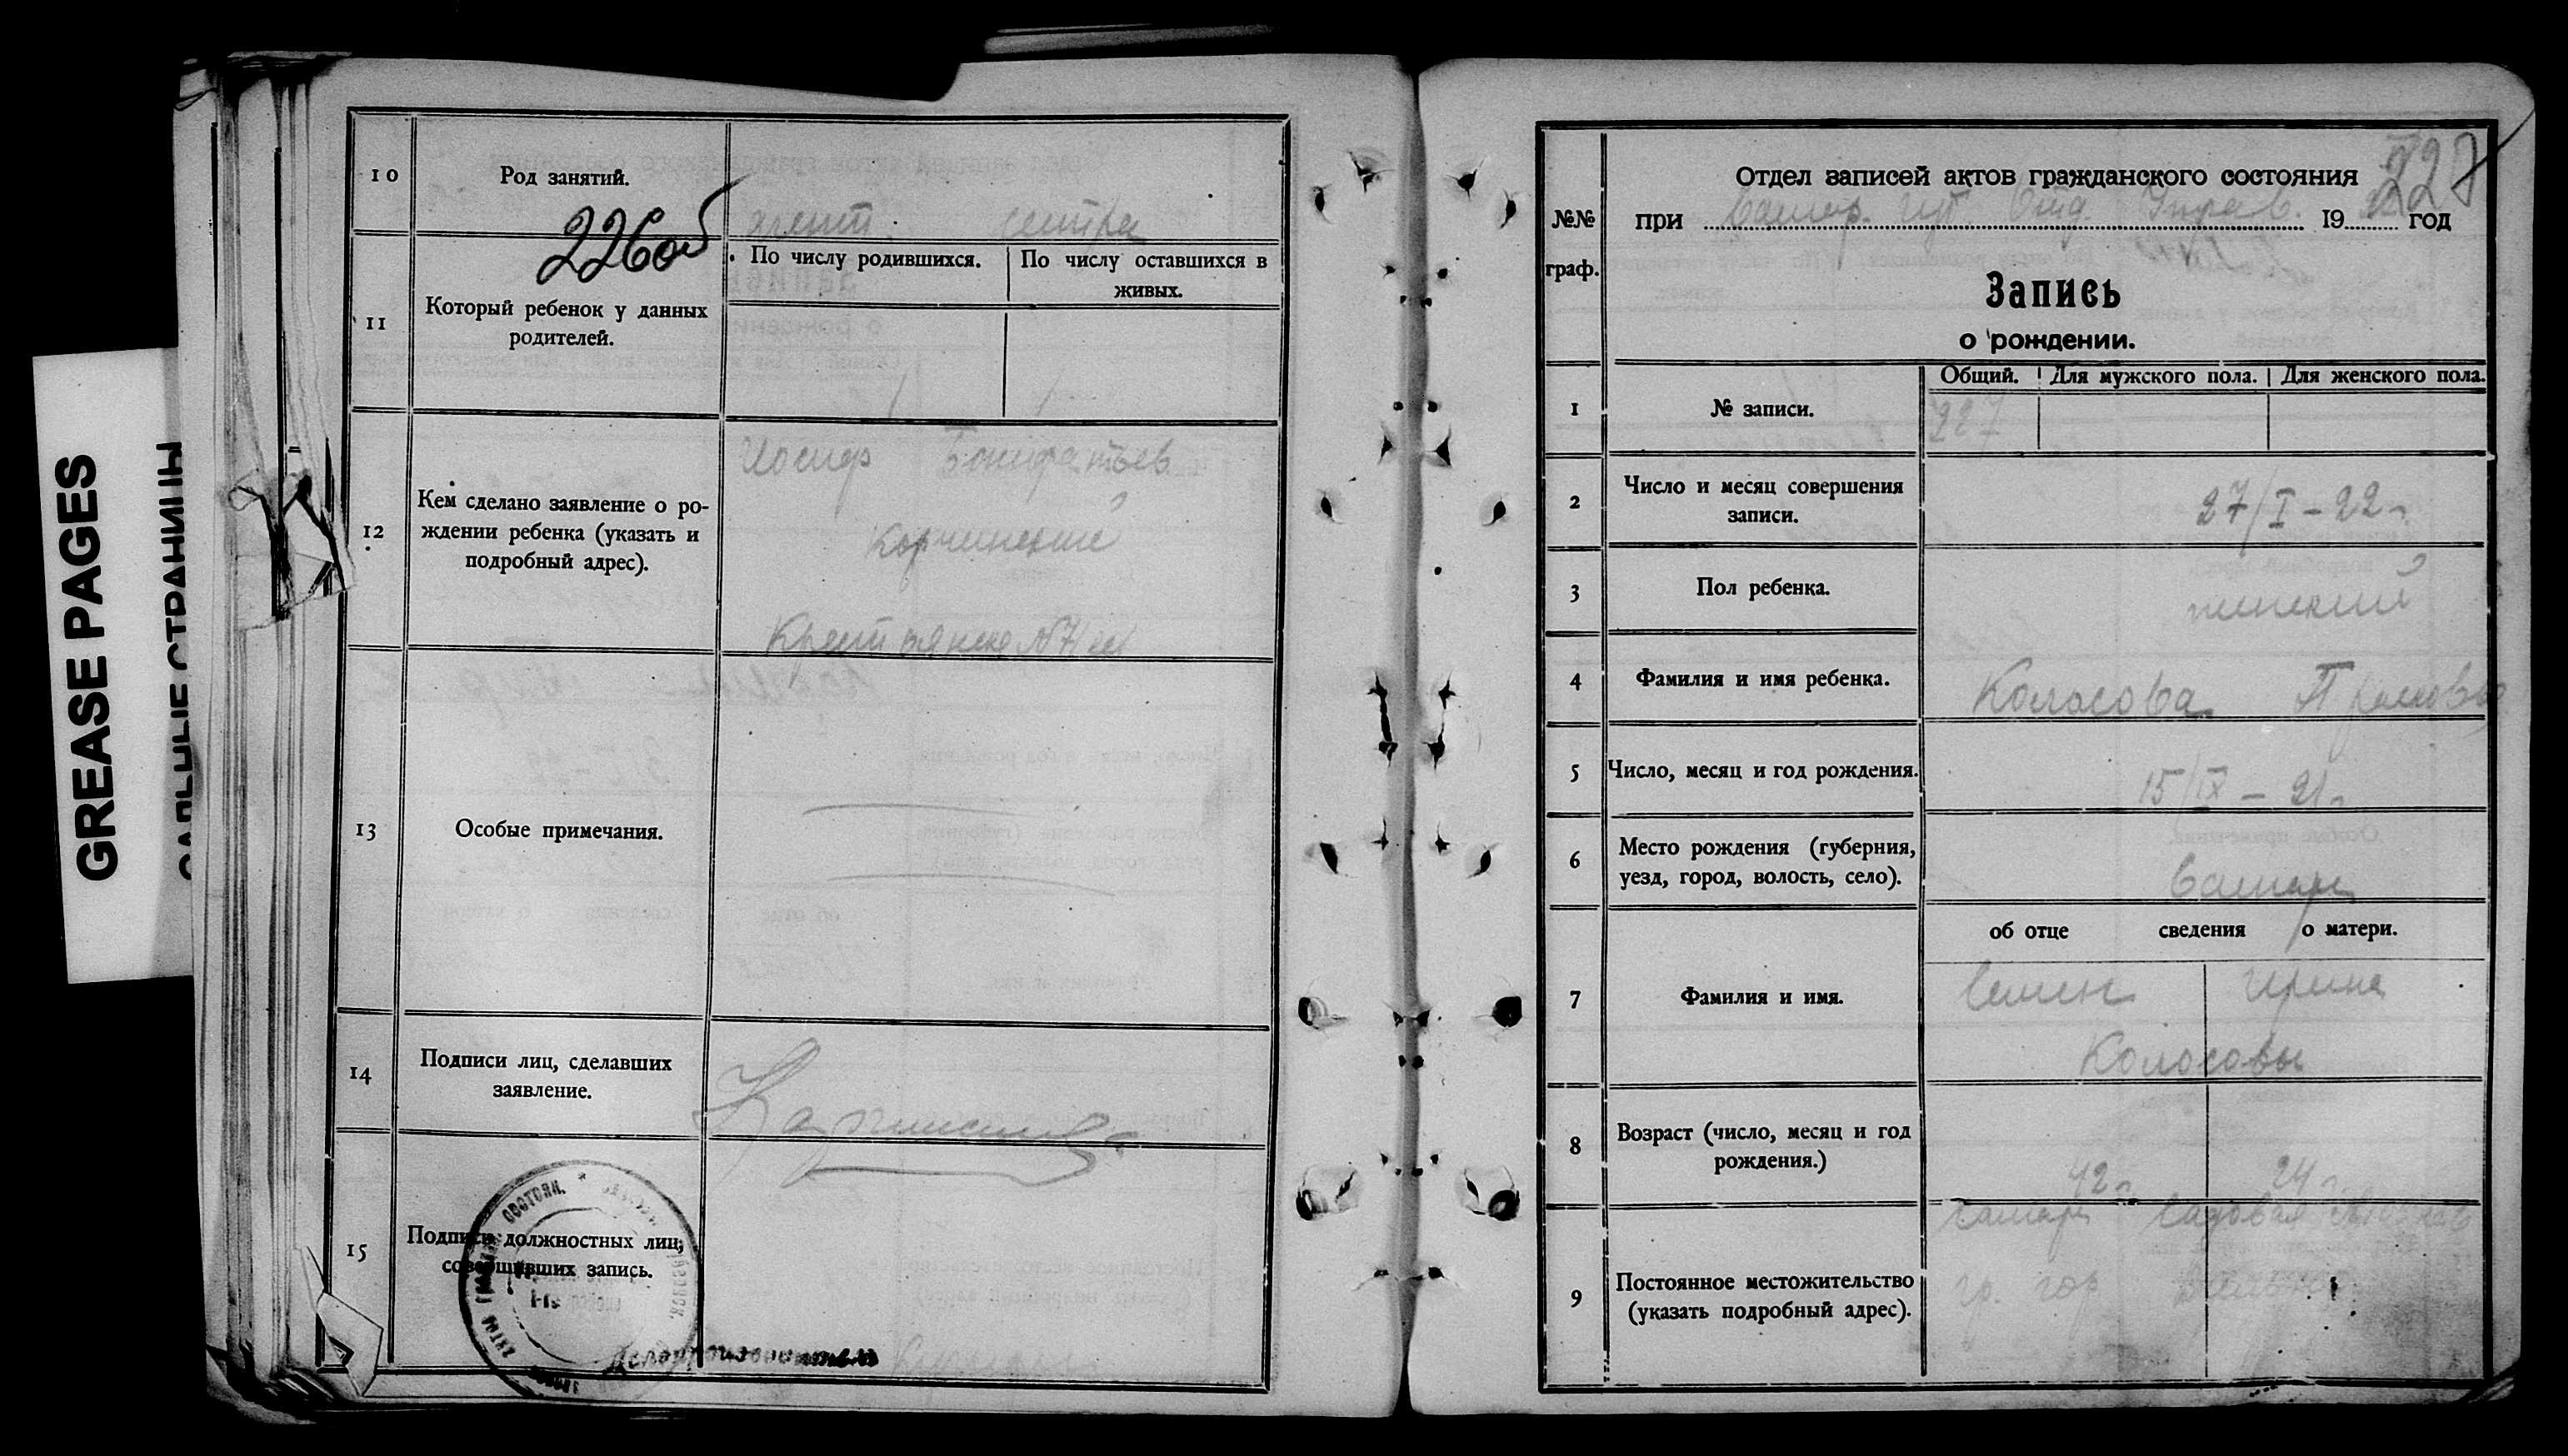 GREASE PAGES
10
Род занятий.
агент. сестра
226 об
11
Который ребенок у данных
родителей.
По числу родившихся.
По числу оставшихся в
живых.
1 1
12
Кем сделано заявление о ро-
ждении ребенка (указать и
подробный адрес).
Иосиф Бонифатьев
Корчинский
13
Особые примечания.
14
Подписи лиц, сделавших
заявление.
15
Подписи должностных лиц,
совершивших запись.
Делопроизводитель
227
№№
граф.
Отдел записей актов гражданского состояния
при Самар. губ. Отд. Управ. 19 год
Запись
о рождении.
Общий. Для мужского пола. Для женского пола.
1
№ записи.
227
2
Число и месяц совершения
записи.
27/I – 22
3
Пол ребенка.
женский
4
Фамилия и имя ребенка.
Колосова
5
Число, месяц и год рождения.
15/IX – 21
6
Место рождения (губерния,
уезд, город, волость, село).
Самара
об отце сведения о матери.
7
Фамилия и имя.
Семен Ирина
Колосовы
8
Возраст (число, месяц и год
рождения.)
42 24
9
Постоянное местожительство
(указать подробный адрес).
Самара Садовая
гр. гор